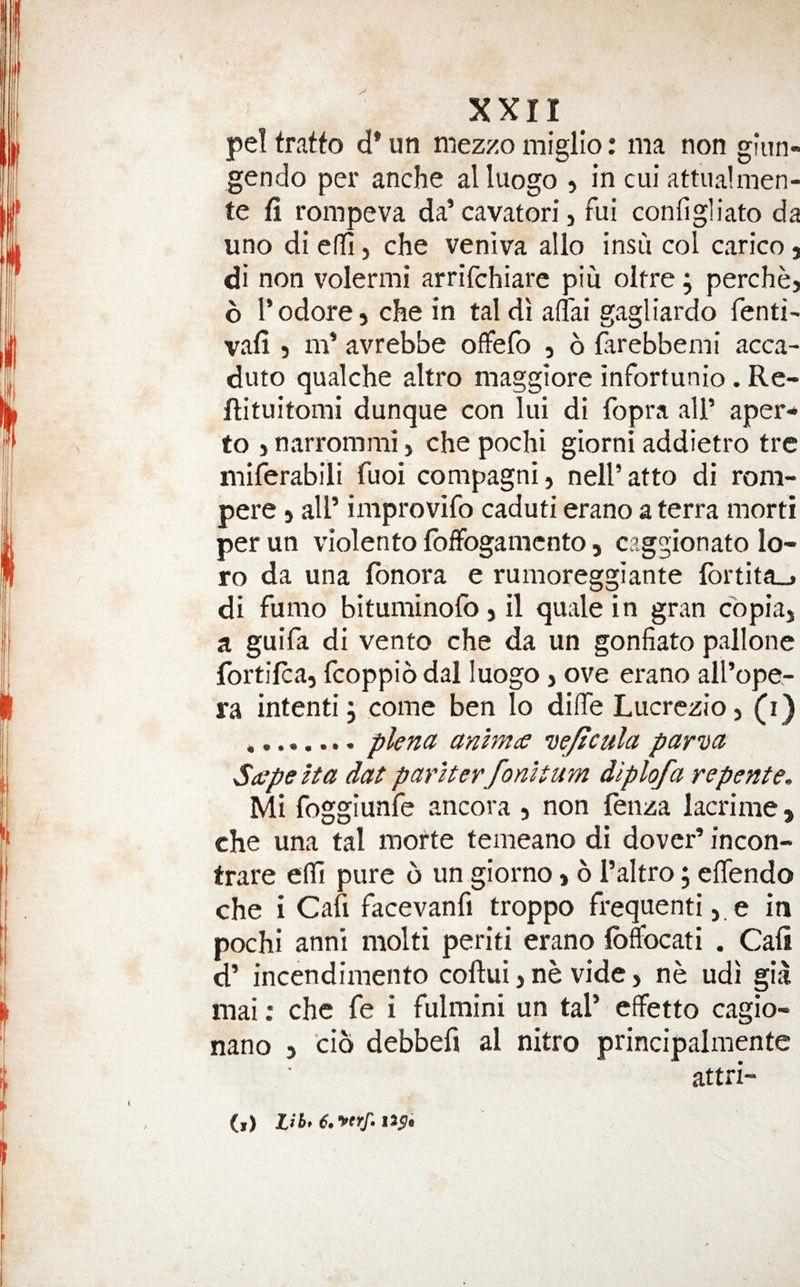 XXII
pel tratto d' un mezzo miglio: ma non giun-
gendo per anche al luogo , in cui attualmen-
te ſi rompeva da' cavatori, fui conſigliato da
uno di eſſi, che veniva allo insù col carico,
di non volermi arriſchiare più oltre; perchè,
ò l'odore, che in tal dì aſſai gagliardo ſenti-
vaſi , m' avrebbe offeſo , ò ſarebbemi acca-
duto qualche altro maggiore infortunio. Re-
ſtituitomi dunque con lui di ſopra all' aper-
to , narrommi, che pochi giorni addietro tre
miſerabili ſuoi compagni, nell' atto di rom-
pere , all' improviſo caduti erano a terra morti
per un violento ſoffogamento, caggionato lo-
ro da una ſonora e rumoreggiante ſortita
di fumo bituminoſo, il quale in gran còpia,
a guiſa di vento che da un gonfiato pallone
ſortiſca, ſcoppiò dal luogo , ove erano all'ope-
ra intenti; come ben lo diſſe Lucrezio, (1)
........ plena animæ veſicula parva
Sæpe ita dat pariter ſonitum diploſa repente.
Mi ſoggiunſe ancora , non ſenza lacrime,
che una tal morte temeano di dover' incon-
trare eſſi pure ò un giorno, ò l'altro; eſſendo
che i Caſi facevanſi troppo frequenti, e in
pochi anni molti periti erano ſoffocati . Caſi
d' incendimento coſtui, nè vide, nè udì già
mai: che ſe i fulmini un tal' effetto cagio-
nano , ciò debbeſi al nitro principalmente
attri-
(1) Lib. 6. verſ. 129.